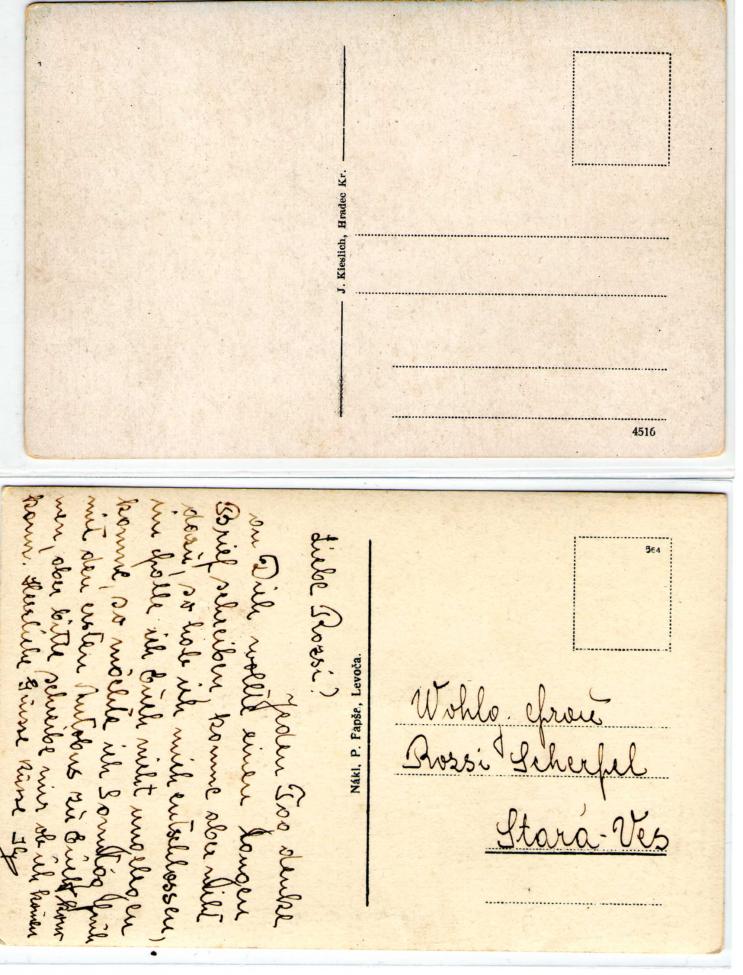 J. Kieslich, Hradec Kr.
4516
Liebe Rozsi!
Jeden Tag denke
an Dich wollte einen langen
Brief schreiben, komme aber nicht
dazu, so hab ich mich entschlossen,
im falle ich Euch nicht ungelegen
komme, so möchte ich Sonntag früh
mit den ersten Autobus zu Euch kom
men, aber bitte schreibe mir ob ich kommen
kann. Herzliche Grüsse Küsse
Nákl. P. Fapšo, Levoča.
564
Wohlg. Frau
Rozsi Scherfel
Stará-Ves